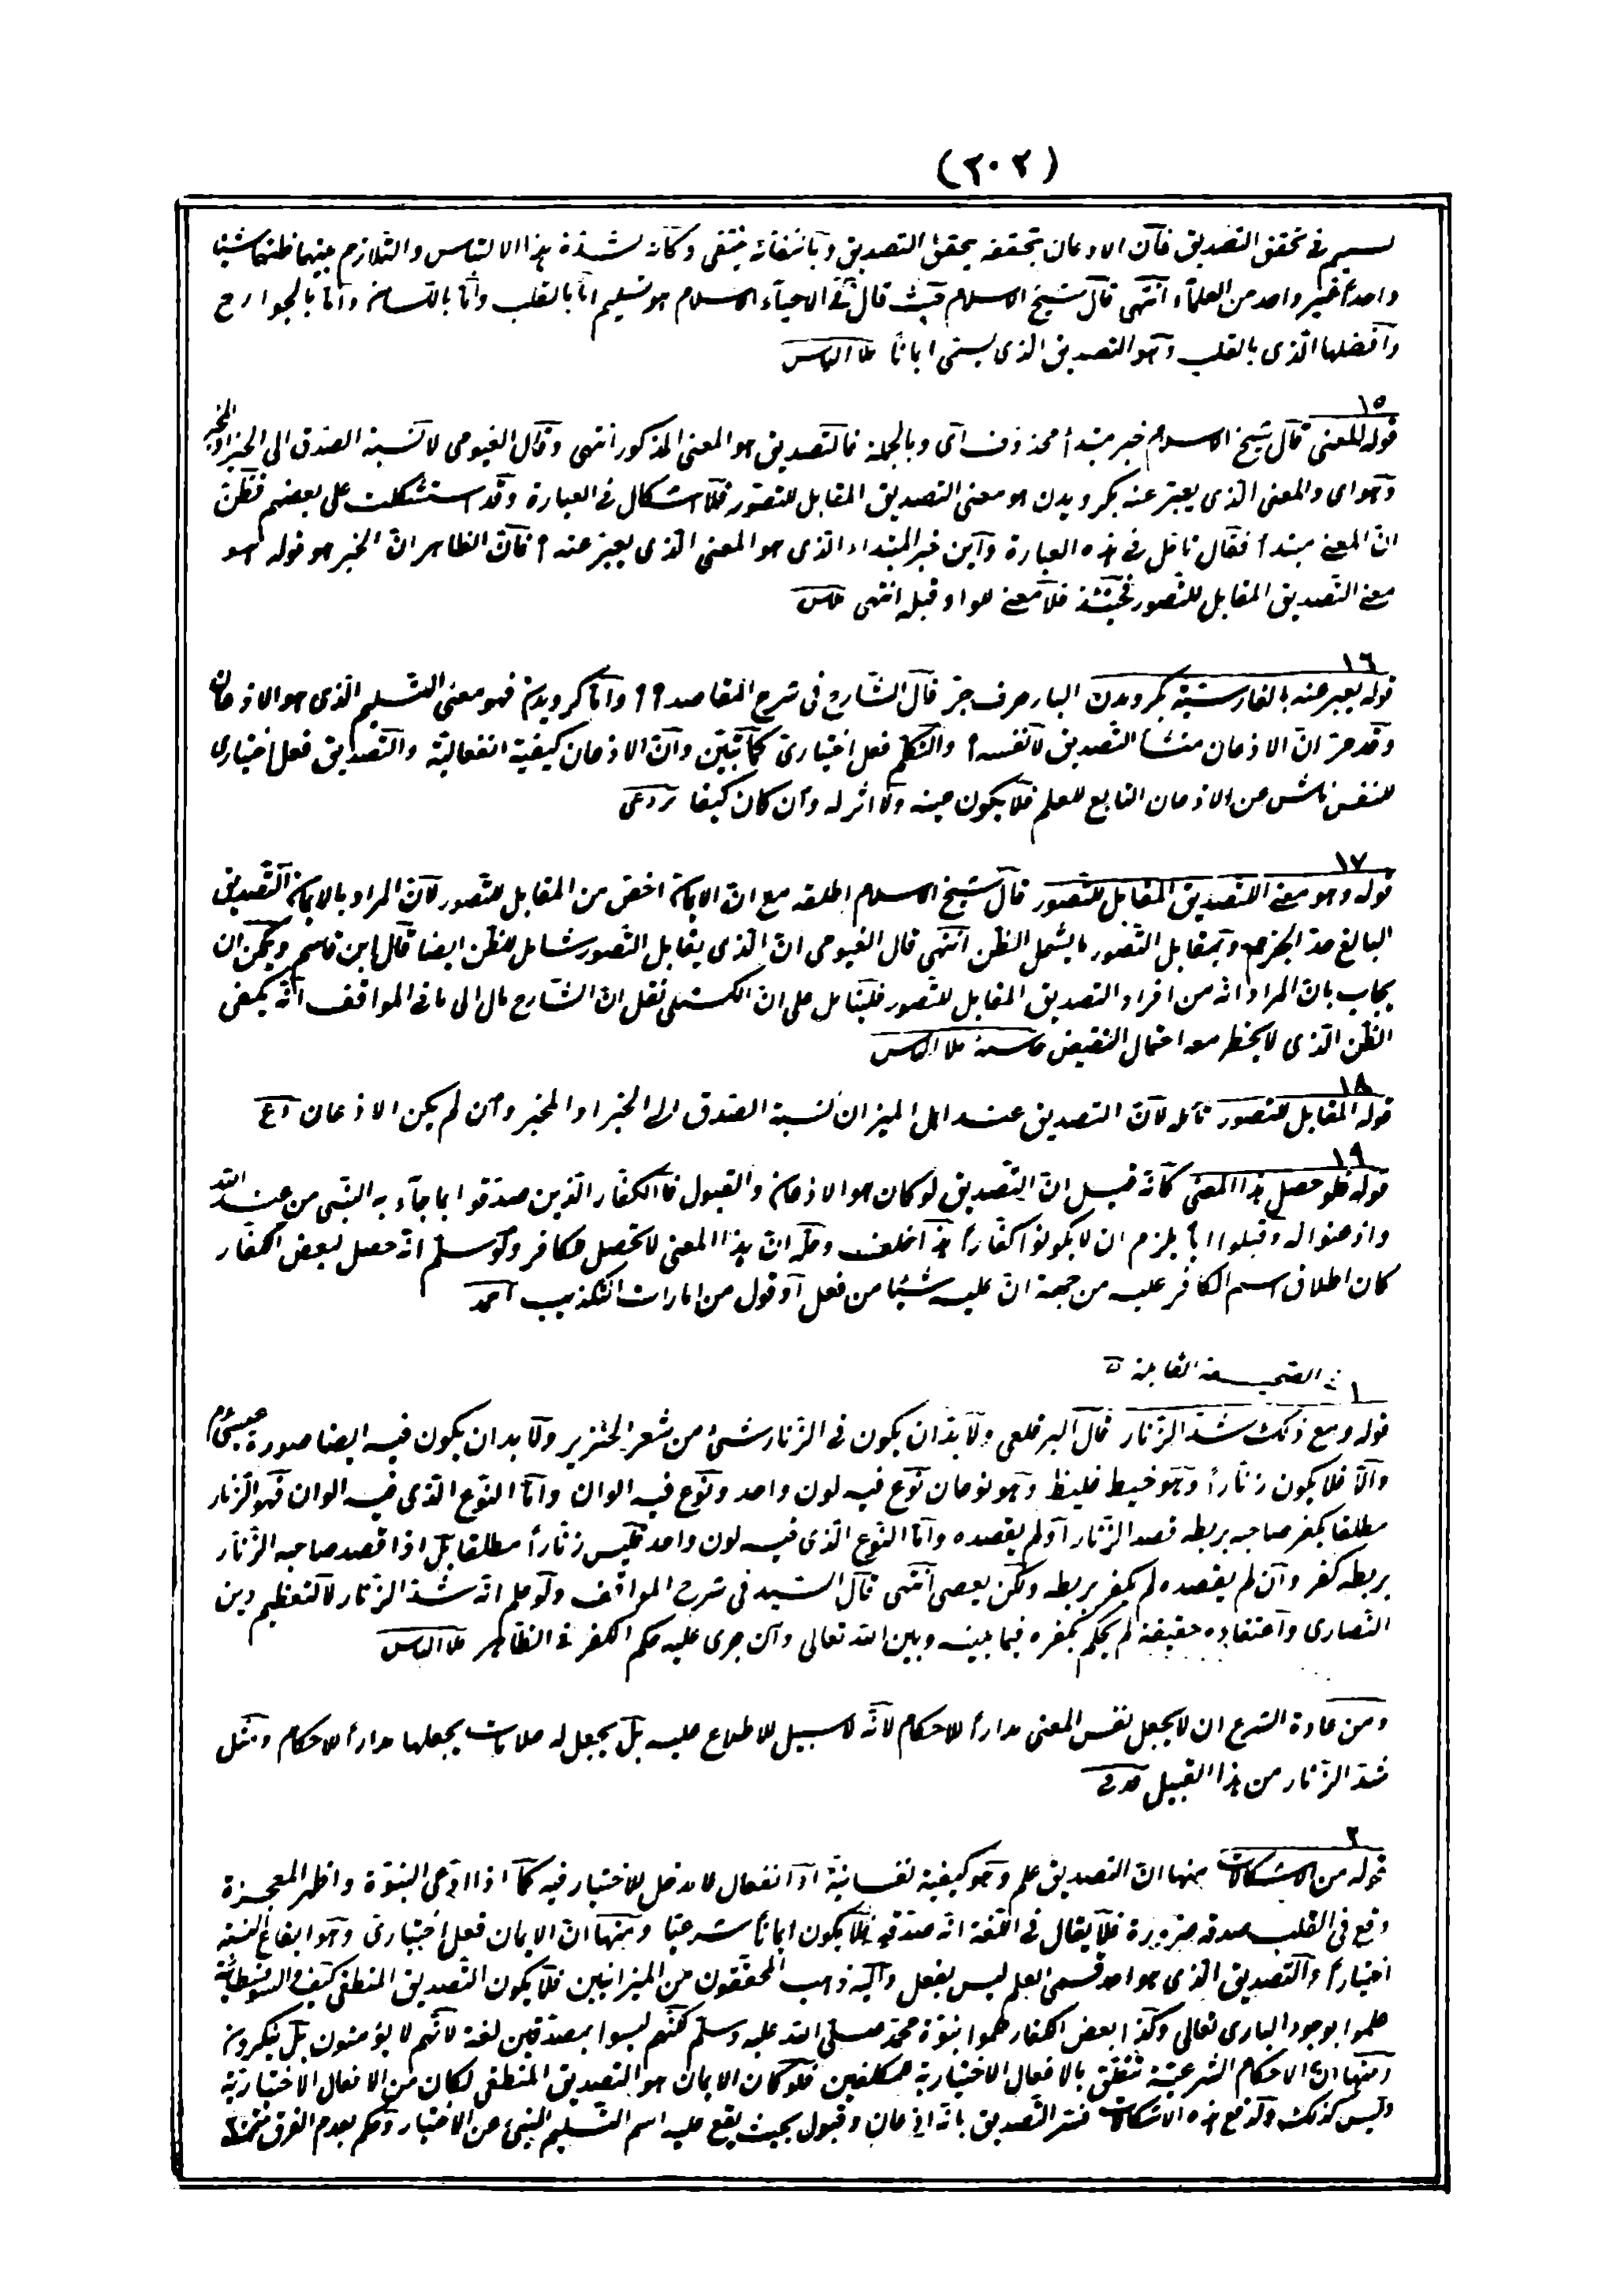 (٢٠٢)
لسيم في تحقق التصديق فان الاذعان بتحققه يتحقق التصديق وبانتفائه ينتفى وكانه لشدة هذا الالتباس والتلازم بينهما ظنهما شيئا
واحدا غير واحد من العلماء انتهى قال شيخ الاسلام حيث قال في الاحياء الاسلام هو تسليم اما بالقلب واما باللسان واما بالجوارح
وافضلها الذى بالقلب وهو التصديق الذى يسمى ايمانا ملا الياس
١٥
قوله المعنى قال شيخ الاسلام خبر مبتدأ محذوف اى وبالجملة فالتصديق هو المعنى المذكور انتهى وقال الفيومى لا نسبة الصدق الى الخبر او المخبر
وهو اى والمعنى الذى يعبر عنه بكرويدن هو معنى التصديق المقابل للتصور فلا اشكال في العبارة وقد استشكلت على بعضهم فظن
ان المعنى مبتدأ فقال تأمل في هذه العبارة واين خبر المبتداء الذى هو المعنى الذى يعبر عنه أ فان الظاهر ان الخبر هو قوله هو
معنى التصديق المقابل للتصور فحينئذ فلا معنى للواو قبله انتهى ملاس
١٦
قوله يعبر عنه بالفارسية بكرويدن الباء حرف جر قال الشارح فى شرح المقاصد ؟؟ واما كرويدن فهو معنى التسليم الذى هو الاذعان
وقد مر ان الاذعان منشأ التصديق لا نفسه أ والتكلم فعل اختيارى كما تبين وان الاذعان كيفية انفعالية والتصديق فعل اختيارى
للنفس ناش من الاذعان التابع للعلم فلا يكون عينه ولا اثر له وان كان كيفا بردعى
١٧
قوله وهو معنى التصديق المقابل للتصور قال شيخ الاسلام اطلقه مع ان الايمان اخص من المقابل للتصور لان المراد بالايمان التصديق
البالغ حد الجزم وبمقابل التصور ما يشمل الظن انتهى قال الفيومى ان الذى يقابل التصور شامل للظن ايضا قال ابن قاسم ويمكن ان
يجاب بان المراد انه من افراد التصديق المقابل للتصور فليتأمل على ان الكستلى نقل ان الشارح مال الى ما فى المواقف انه يكفى
الظن الذى لا يخطر معه احتمال النقيض حاشية ملا الياس
١٨
قوله المقابل للتصور تأمله لان التصديق عند اهل الميزان نسبة الصدق الى الخبر او المخبر وان لم يكن الاذعان اع
١٩
قوله فلو حصل هذا المعنى كانه قيل ان التصديق لو كان هو الاذعان والقبول فالكفار الذين صدقوا بما جاء به النبى من عند الله
واذعنوا له وقبلوا يلزم ان لا يكونوا كفارا هذا خلف وحله ان هذا المعنى لا تحصل للكافر ولو سلم انه حصل لبعض الكفار
كان اطلاق اسم الكافر عليه من جهة ان عليه شيئا من فعل او قول من امارات التكذيب احمد
في الصحيفة القابلة
١
قوله ومع ذلك شد الزنار قال البرقلعى ولا بد ان يكون فى الزنار شئ من شعر الخنزير ولا بد ان يكون فيه ايضا صورة عيسى عم
والا فلا يكون زنارا وهو خيط غليظ وهو نوعان نوع فيه لون واحد ونوع فيه الوان واما النوع الذى فيه الوان فهو الزنار
مطلقا يكفر صاحبه بربطه قصد الزنار او لم يقصده واما النوع الذى فيه لون واحد فليس زنارا مطلقا بل اذا قصد صاحبه الزنار
بربطه كفر وان لم يقصده لم يكفر بربطه ولكن يعصى انتهى قال السيد فى شرح المواقف ولو علم انه شد الزنار لا لتعظيم دين
النصارى واعتقاده حقيقة لم يحكم بكفره فيما بينه وبين الله تعالى وان جرى عليه حكم الكفر فى الظاهر ملا الياس
ومن عادة الشرع ان لا يجعل نفس المعنى مدارا للاحكام لانه لا سبيل للاطلاع عليه بل يجعل له علامات يجعلها مدارا للاحكام ومثل
شد الزنار من هذا القبيل
٢
قوله من الاشكالات منها ان التصديق علم وهو كيفية نفسانية او انفعال لا مدخل للاختيار فيه كما اذا ادعى النبوة واظهر المعجزة
وقع فى القلب صدقه ضرورة فلا يقال فى اللغة انه صدقه فلا يكون ايمانا شرعيا ومنها ان الايمان فعل اختيارى وهو ايقاع النسبة
اختيارا والتصديق الذى هو احد قسمى العلم ليس بفعل واليه ذهب المحققون من الميزانيين فلا يكون التصديق المنطقى كيف والسوفسطائية
علموا بوجود البارى تعالى وكذا بعض الكفار علموا نبوة محمد صلى الله عليه وسلم لكنهم ليسوا بمصدقين لغة لانهم لا يؤمنون بل ينكرون
ومنها ان الاحكام الشرعية تتعلق بالافعال الاختيارية للمكلفين فلو كان الايمان هو التصديق المنطقى لكان من الافعال الاختيارية
وليس كذلك ولدفع هذه الاشكالات فسر التصديق بانه اذعان وقبول بحيث يقع عليه اسم التسليم المنبئ عن الاختيار وحكم بعدم الفرق